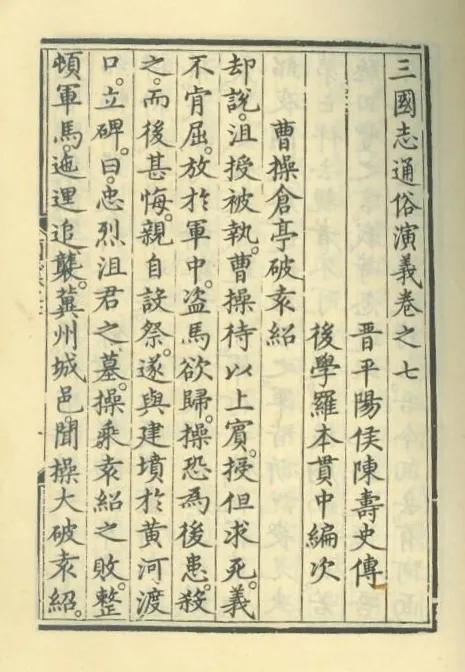 三國志通俗演義卷之七
晉平陽侯陳壽史傳
後學羅本貫中編次
曹操倉亭破袁紹
却說。沮授被執。曹操待以上賓。授但求死。義
不肯屈。放於軍中。盜馬欲歸。操恐為後患。殺
之。而後甚悔。親自設祭。遂與建墳於黃河渡
口。立碑。曰。忠烈沮君之墓。操乘袁紹之敗。整
頓軍馬。迤逶追襲。冀州城邑。聞操大破袁紹。